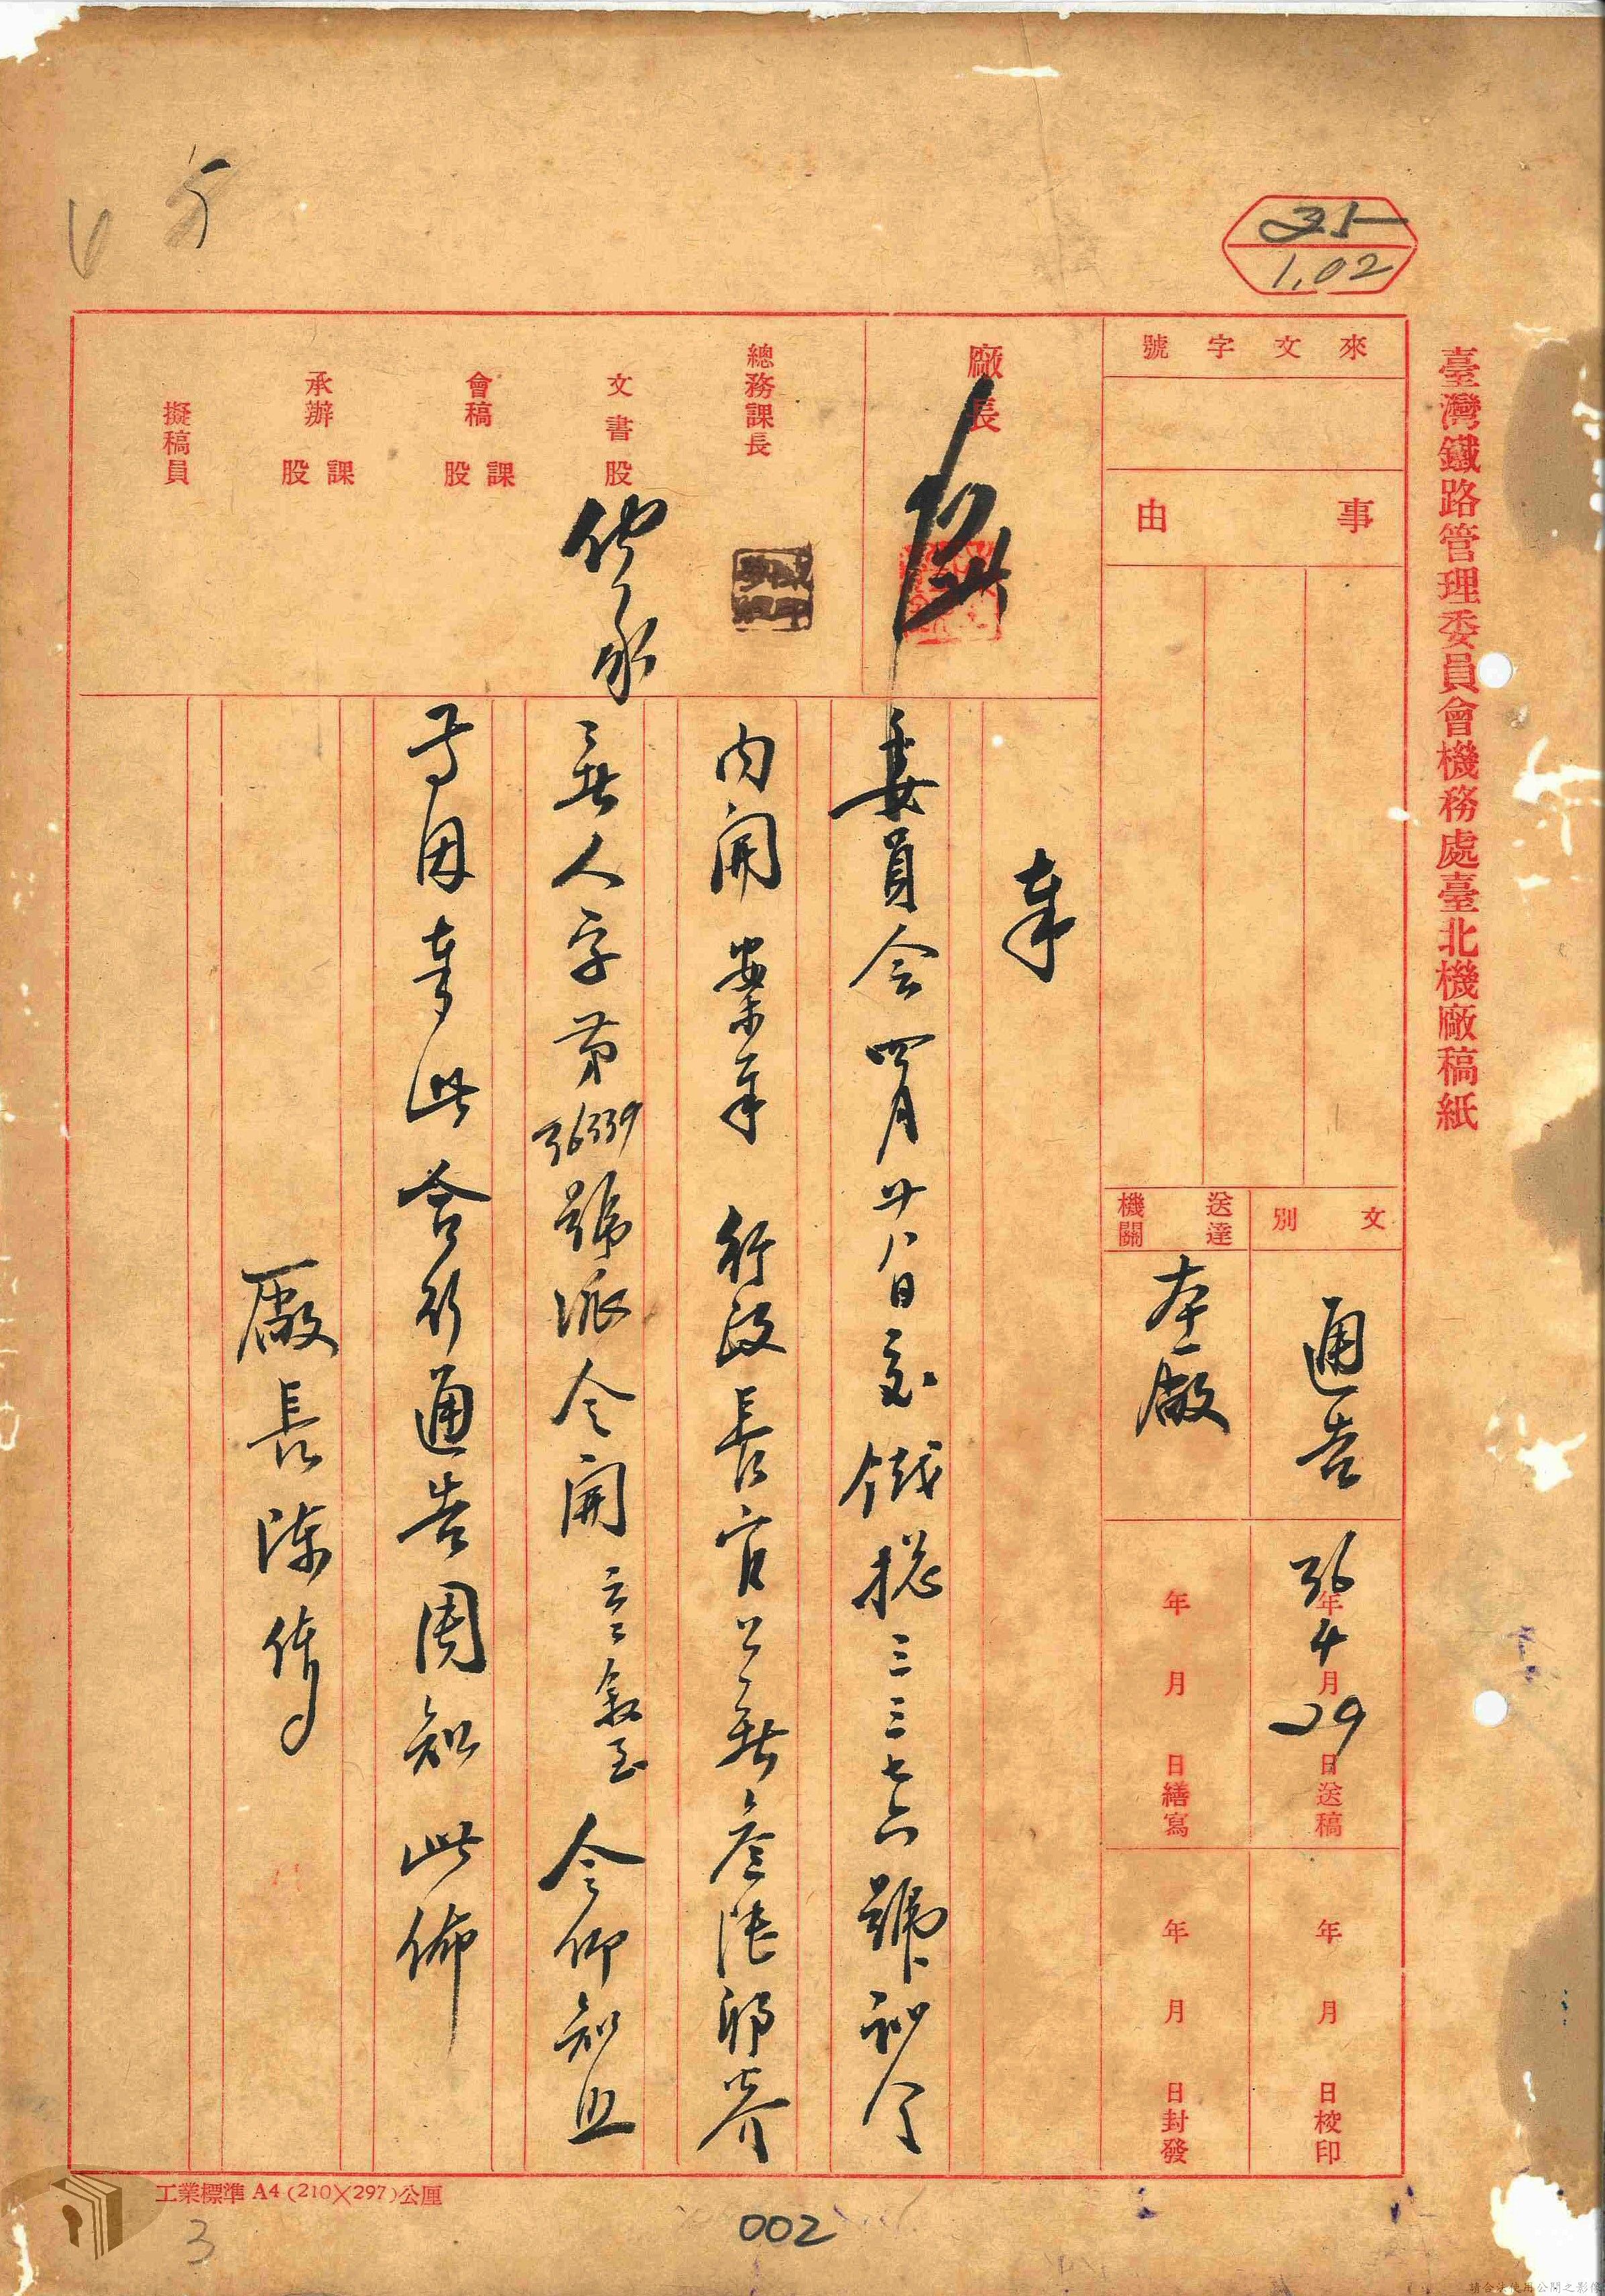 35
1.02
臺灣鐵路管理委員會機務處臺北機廠稿紙
來文字號
事由
文別
通告
送達機關
本廠
36年4月29日送稿
年月日繕寫
年月日校印
年月日封發
廠長
總務課長
文書股
會稿 課股
承辦 課股
擬稿員
奉
委員会四月廿八日 鉄總三三七六號訓令
內開案奉 行政長官公署叁陸卯
署人字第36339號派令開 云云敘至 令仰知照
等因奉此合行通告周知此佈
廠長陳
工業標準A4(210×297)公厘
3
002